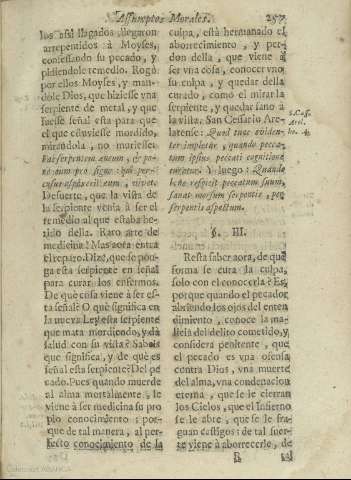 Assumptos Morales. 257
los assi llagados, llegaron
arrepentidos à Moyses,
confessando su pecado, y
pidiendole remedio. Rogò
por ellos Moyses, y man-
dole Dios, que hiziesse vna
serpiente de metal, y que
fuesse señal esta para que
el que estuviesse mordido,
mirandola, no muriesse:
Fac serpentem aneum, & po-
ne eum pro signo: qui per-
cussus aspexerit eum, vivet.
De suerte, que la vista de
la serpiente venia à ser el
remedio al que estaba he-
rido della. Raro arte de
medicina! Mas aora entra
el reparo. Dize, que se pon-
ga esta serpiente en señal
para curar los enfermos.
De què cosa viene à ser es-
ta señal? O què significa en
la nueva Ley esta serpiente
que mata mordiendo, y dà
salud con su vista? Sabeis
que significa, y de què es
señal esta serpiente? Del pe-
cado. Pues quando muerde
al alma mortalmente, le
viene à ser medicina su pro-
pio conocimiento: por-
que de tal manera, al per-
fecto conocimiento de la
culpa, està hermanado el
aborrecimiento, y per-
don della, que viene à
ser vna cosa, conocer vno
su culpa, y quedar della
curado, como el mirar la
serpiente, y quedar sano à
la vista. San Cesario Are-
latense: Quod tunc eviden-
ter impletur, quando pecca-
tum ipsius peccati cognitione
curatur. Y luego: Quando
homo respicit peccatum suum,
sanat morsum serpentis, per
serpentis aspectum.
S. Ces.
Arel.
ho. 4.
§. III.
Resta saber aora, de què
forma se cura la culpa,
solo con el conocerla? Es,
porque quando el pecador
abriendo los ojos del enten-
dimiento, conoce la ma-
licia del delito cometido, y
considera penitente, que
el pecado es vna ofensa
contra Dios, vna muerte
del alma, vna condenacion
eterna, y que se le cierran
los Cielos, que el Infierno
se le abre, que se le fra-
guan castigos: de tal suer-
te viene à aborrecerle, de